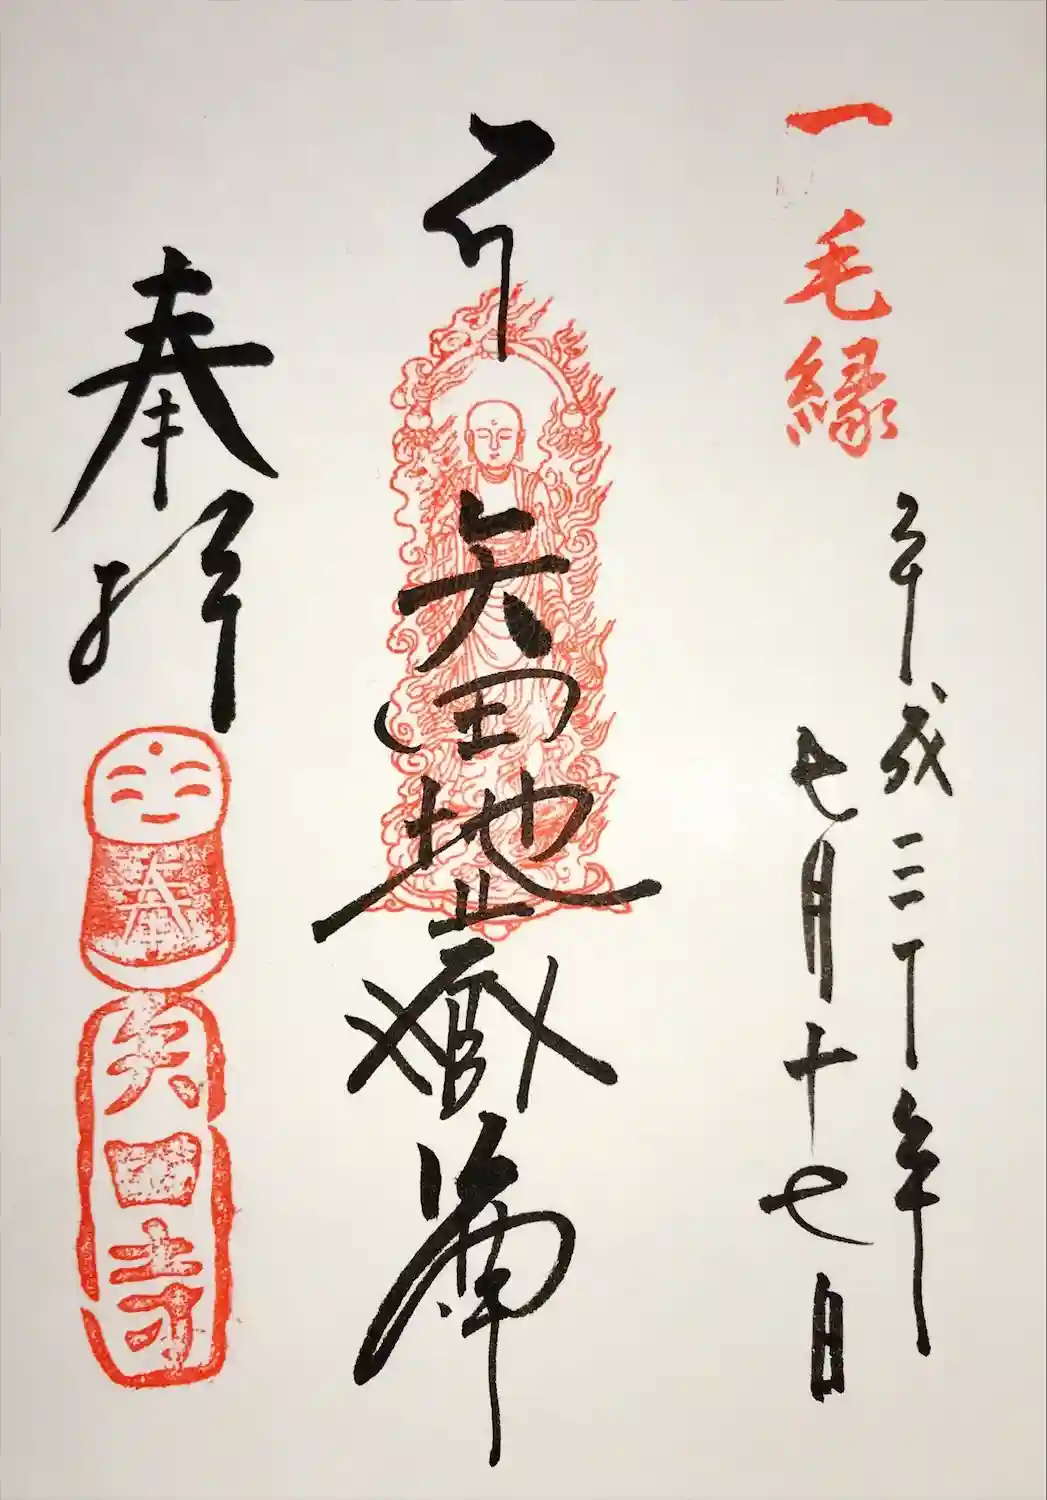 一毛縁
平成三十年
七月十七日
矢田地蔵尊
奉拝
奉
矢田寺